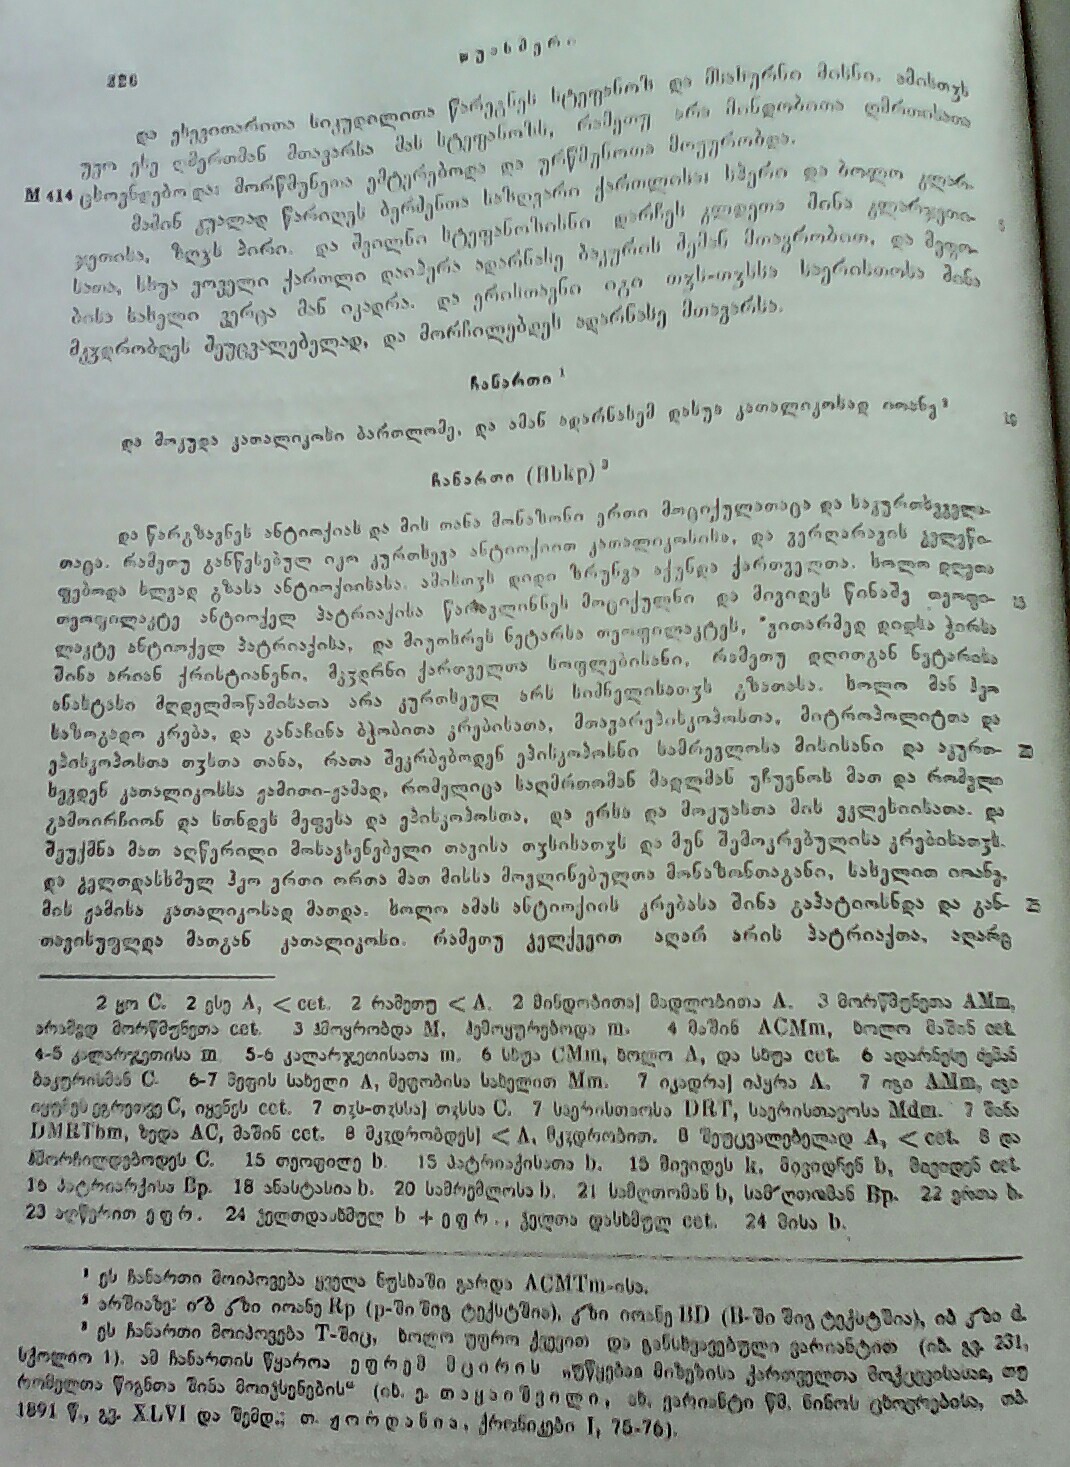 226
ჯუანშერი
და ესევითარითა სიკუდილითა წარეგნეს სტეფანოზ და მსახურნი მისნი. ამისთჳს
უყო ესე ღმერთმან მთავარსა მას სტეფანოსს, რამეთუ არა მინდობითა ღმრთისათა
M 414 ცხოვნდებოდა: მორწმუნეთა ემტერებოდა და ურწმუნოთა მოყურობდა.
მაშინ კუალად წარიღეს ბერძენთა საზღვარი ქართლისა: სპერი და ბოლო კლარ-
ჯეთისა, ზღჳს პირი. და შვილნი სტეფანოზისნი დარჩეს კლდეთა შინა კლარჯეთი- 5
სათა, სხუა ყოველი ქართლი დაიპყრა ადარნასე ბაკურის ძემან მთავრობით, და მეფო-
ბისა სახელი ვერცა მან იკადრა. და ერისთავნი იგი თჳს-თჳსსა საერისთოსა შინა
მკჳდრობდეს შეუცვალებელად, და მორჩილებდეს ადარნასე მთავარსა.
ჩანართი ¹
და მოკუდა კათალიკოსი ბართლომე, და ამან ადარნასემ დასუა კათალიკოსად იოანე ² 10
ჩანართი (Bbkp) ³
და წარგზავნეს ანტიოქიას და მის თანა მონაზონი ერთი მოციქულათაცა და საკურთხეველა-
თაცა. რამეთუ განწესებულ იყო კურთხევა ანტიოქიით კათალიკოსისა, და ვერღარავის ჴელეწი-
ფებოდა სლვად გზასა ანტიოქიისასა. ამისთჳს დიდი ზრუნვა აქუნდა ქართველთა. ხოლო დღეთა
თეოფილაკტე ანტიოქელ პატრიაქისა წარავლინნეს მოციქულნი და მივიდეს წინაშე თეოფი- 15
ლაკტე ანტიოქელ პატრიაქისა, და მიუთხრეს ნეტარსა თეოფილაკტეს, "ვითარმედ დიდსა ჭირსა
შინა არიან ქრისტიანენი, მკჳდრნი ქართველთა სოფლებისანი, რამეთუ დღითგან ნეტარისა
ანასტასი მღდელმოწამისათა არა კურთხეულ არს სიძნელისათჳს გზათასა. ხოლო მან ჰყო
საზოგადო კრება, და განაჩინა ბჭობითა კრებისათა, მთავარეპისკოპოსთა, მიტროპოლიტთა და
ეპისკოპოსთა თჳსთა თანა, რათა შეკრბებოდენ ეპისკოპოსნი სამრევლოსა მისისანი და აკურთ- 20
ხევდენ კათალიკოსსა ჟამითი-ჟამად, რომელიცა საღმრთომან მადლმან უჩუენოს მათ და რომელი
გამოირჩიონ და სთნდეს მეფესა და ეპისკოპოსთა, და ერსა და მოყუასთა მის ეკლესიისათა. და
შეუქმნა მათ აღწერილი მოსაჴსენებელი თავისა თჳსისათჳს და მუნ შემოკრებულისა კრებისათჳს.
და ჴელთდასსმულ ჰყო ერთი ორთა მათ მისსა მოვლინებულთა მონაზონთაგანი, სახელით იოანე,
მის ჟამისა კათალიკოსად მათდა. ხოლო ამას ანტიოქიის კრებასა შინა გაპატიოსნდა და გან- 25
თავისუფლდა მათგან კათალიკოსი. რამეთუ ჴელქვეით აღარ არის პატრიაქთა, აღარც
2 ყო C. 2 ესე A, < cet. 2 რამეთუ < A. 2 მინდობითა] მადლობითა A. 3 მორწმუნეთა AMm,
არამედ მორწმუნეთა cet. 3 ჰმოყრობდა M, ჰემოყურებოდა m. 4 მაშინ ACMm, ხოლო მაშინ cet.
4-5 კალარჯეთისა m. 5-6 კალარჯეთისათა m. 6 სხუა CMm, ხოლო A, და სხუა cet. 6 ადარნესე ძემან
ბაკურისმან C. 6-7 მეფის სახელი A, მეფობისა სახელით Mm. 7 იკადრა] იპყრა A. 7 იგი AMm, იგი
იყვნეს ეგრეთვე C, იყვნეს cet. 7 თჳს-თჳსსა] თჳსსა C. 7 საერისთაოსა DRT, საერისთავოსა Mdm. 7 შინა
DMRTbm, ზედა AC, მაშინ cet. 8 მკჳდრობდეს] < A, მკჳდრობით. 8 შეუცვალებელად A, < cet. 8 და
ჰმორჩილდებოდეს C. 15 თეოფილე b. 15 პატრიაქისათა b. 15 მივიდეს k, მივიდნენ b, მივიდენ cet.
16 პატრიარქისა Bp. 18 ანასტასია b. 20 სამრემლოსა b. 21 სამღთომან b, სამღთომან Bp. 22 ერთა b.
23 აღწერით ეფრ. 24 ჴელთდასხმულ b + ეფრ., ჴელთა დასხმულ cet. 24 მისა b.
¹ ეს ჩანართი მოიპოვება ყველა ნუსხაში გარდა ACMTm-ისა.
² არშიაზე: იბ კზი იოანე Rp (p-ში შიგ ტექსტშია), კზი იოანე BD (B-ში შიგ ტექსტშია), იბ კზი d.
³ ეს ჩანართი მოიპოვება T-შიც, ხოლო უფრო ქვევით და განსხვავებული ვარიანტით (იხ. გვ. 231,
სქოლიო 1). ამ ჩანართის წყაროა ეფრემ მცირის „უწყებაჲ მიზეზსა ქართველთა მოქცევისასა, თუ
რომელთა წიგნთა შინა მოიჴსენების“ (იხ. ე. თაყაიშვილი, ახ. ვარიანტი წმ. ნინოს ცხოვრებისა, თბ.
1891 წ., გვ. XLVI და შემდ.; თ. ჟორდანია, ქრონიკები I, 75-76).